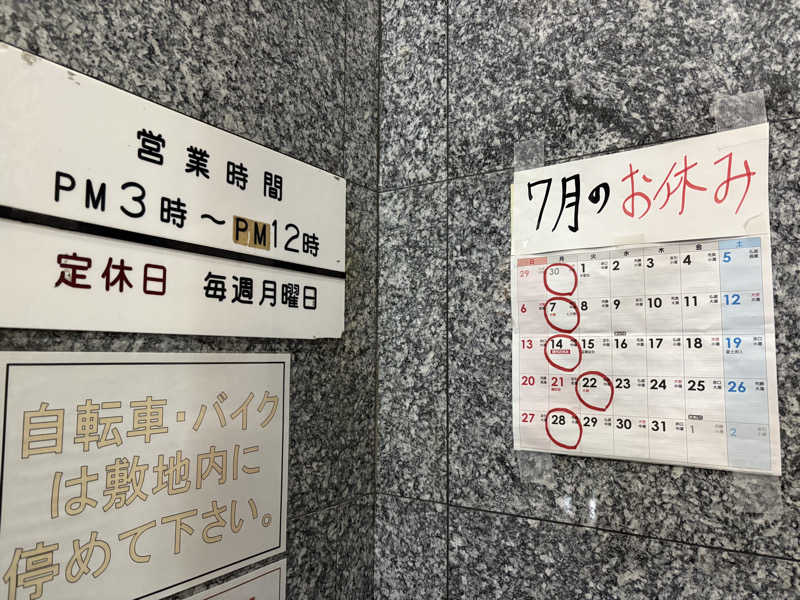 営業時間
PM3時～PM12時
定休日 毎週月曜日
自転車・バイク
は敷地内に
停めて下さい。
7月のお休み
日 月 火 水 木 金 土
29 30 1 2 3 4 5
6 7 8 9 10 11 12
13 14 15 16 17 18 19
20 21 22 23 24 25 26
27 28 29 30 31 1 2